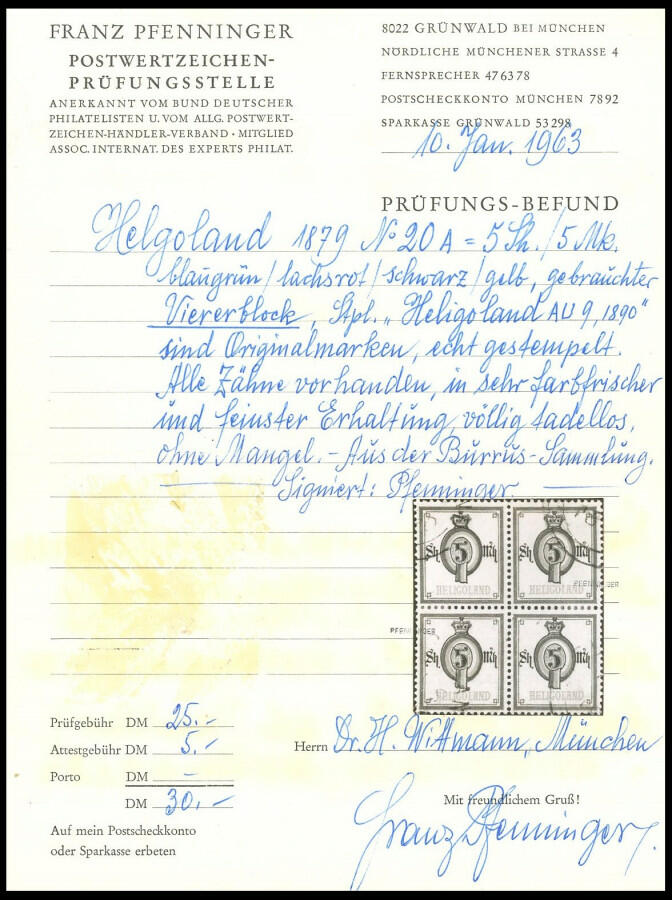 FRANZ PFENNINGER
POSTWERTZEICHEN-
PRÜFUNGSSTELLE
ANERKANNT VOM BUND DEUTSCHER
PHILATELISTEN U. VOM ALLG. POSTWERT-
ZEICHEN-HÄNDLER-VERBAND · MITGLIED
ASSOC. INTERNAT. DES EXPERTS PHILAT.
8022 GRÜNWALD BEI MÜNCHEN
NÖRDLICHE MÜNCHENER STRASSE 4
FERNSPRECHER 476378
POSTSCHECKKONTO MÜNCHEN 7892
SPARKASSE GRÜNWALD 53298
10. Jan. 1963
PRÜFUNGS-BEFUND
Helgoland 1879 No 20 A = 5 Sh./5 Mk.
blaugrün/lachsrot/schwarz/gelb, gebrauchter
Viererblock, Stpl. „Heligoland AU 9, 1890"
sind Originalmarken, echt gestempelt.
Alle Zähne vorhanden, in sehr farbfrischer
und feinster Erhaltung, völlig tadellos,
ohne Mangel. - Aus der Burrus-Sammlung.
Signiert: Pfenninger.
Sh 5 Mk
HELIGOLAND
Sh 5 Mk
HELIGOLAND
PFENNINGER
PFENNINGER
Sh 5 Mk
HELIGOLAND
Sh 5 Mk
HELIGOLAND
Prüfgebühr DM 25.-
Attestgebühr DM 5.-
Porto DM -
DM 30.-
Auf mein Postscheckkonto
oder Sparkasse erbeten
Herrn Dr. H. Wittmann, München
Mit freundlichem Gruß!
Franz Pfenninger.